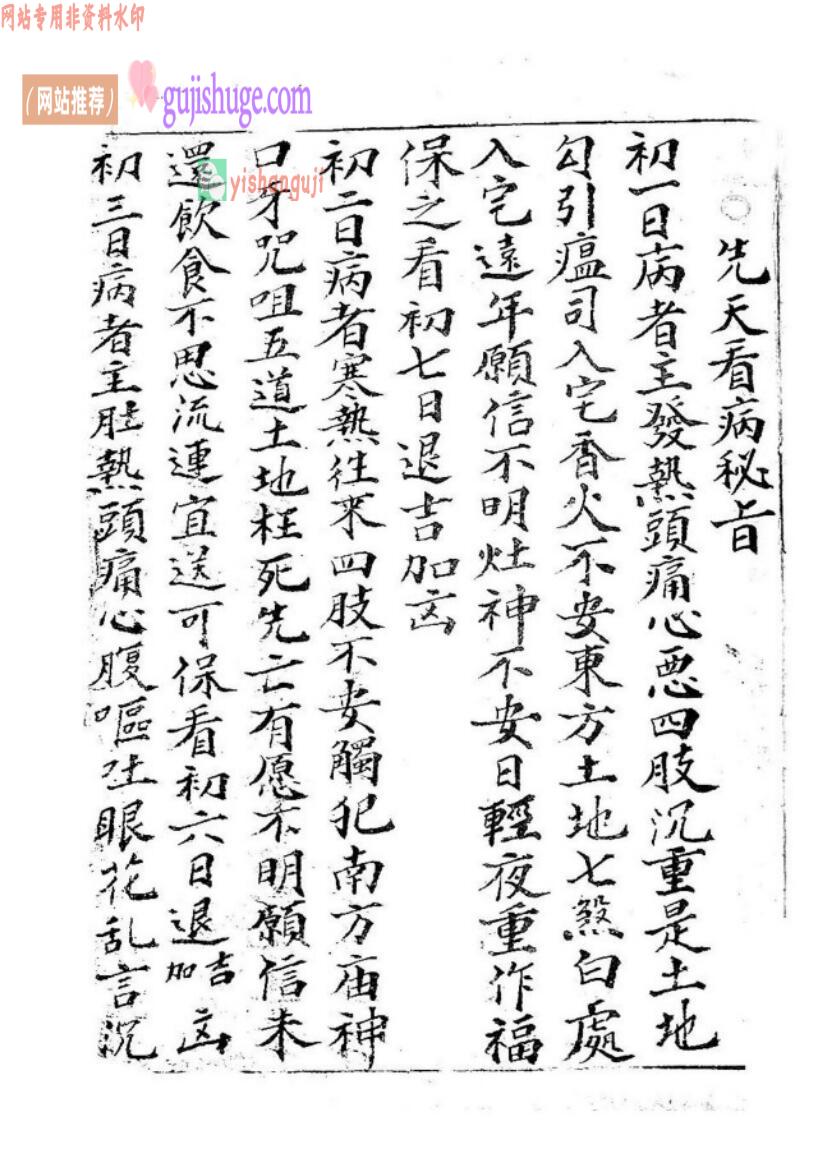 网站专用非资料水印
（网站推荐）
gujishuge.com
yishanguji
先天看病秘旨
初一日病者主發熱頭痛心悪四肢沉重是土地
勾引瘟司入宅香火不安東方土地七煞白處
入宅遠年願信不明灶神不安日輕夜重作福
保之看初七日退吉加凶
初二日病者寒熱往來四肢不安觸犯南方庙神
口牙咒咀五道土地枉死先亡有愿不明願信未
還飲食不思流連宜送可保看初六日退吉加凶
初三日病者主肚熱頭痛心腹嘔吐眼花乱言沉